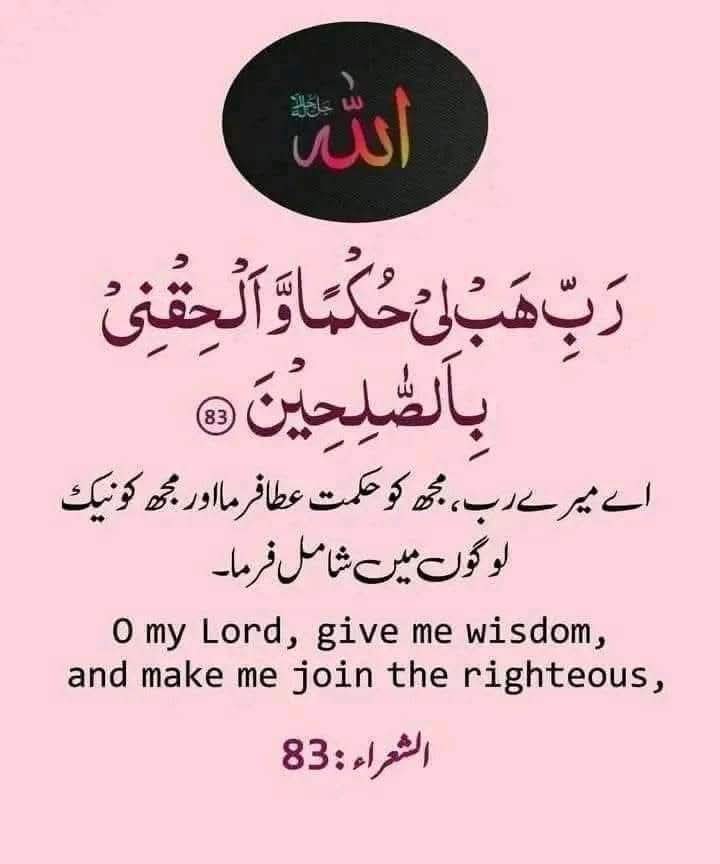 الله جل جلاله
رَبِّ هَبْ لِیْ حُكْمًا وَّ اَلْحِقْنِیْ
بِالصّٰلِحِیْنَ 83
اے میرے رب، مجھ کو حکمت عطا فرما اور مجھ کو نیک
لوگوں میں شامل فرما۔
O my Lord, give me wisdom,
and make me join the righteous,
الشعراء: 83